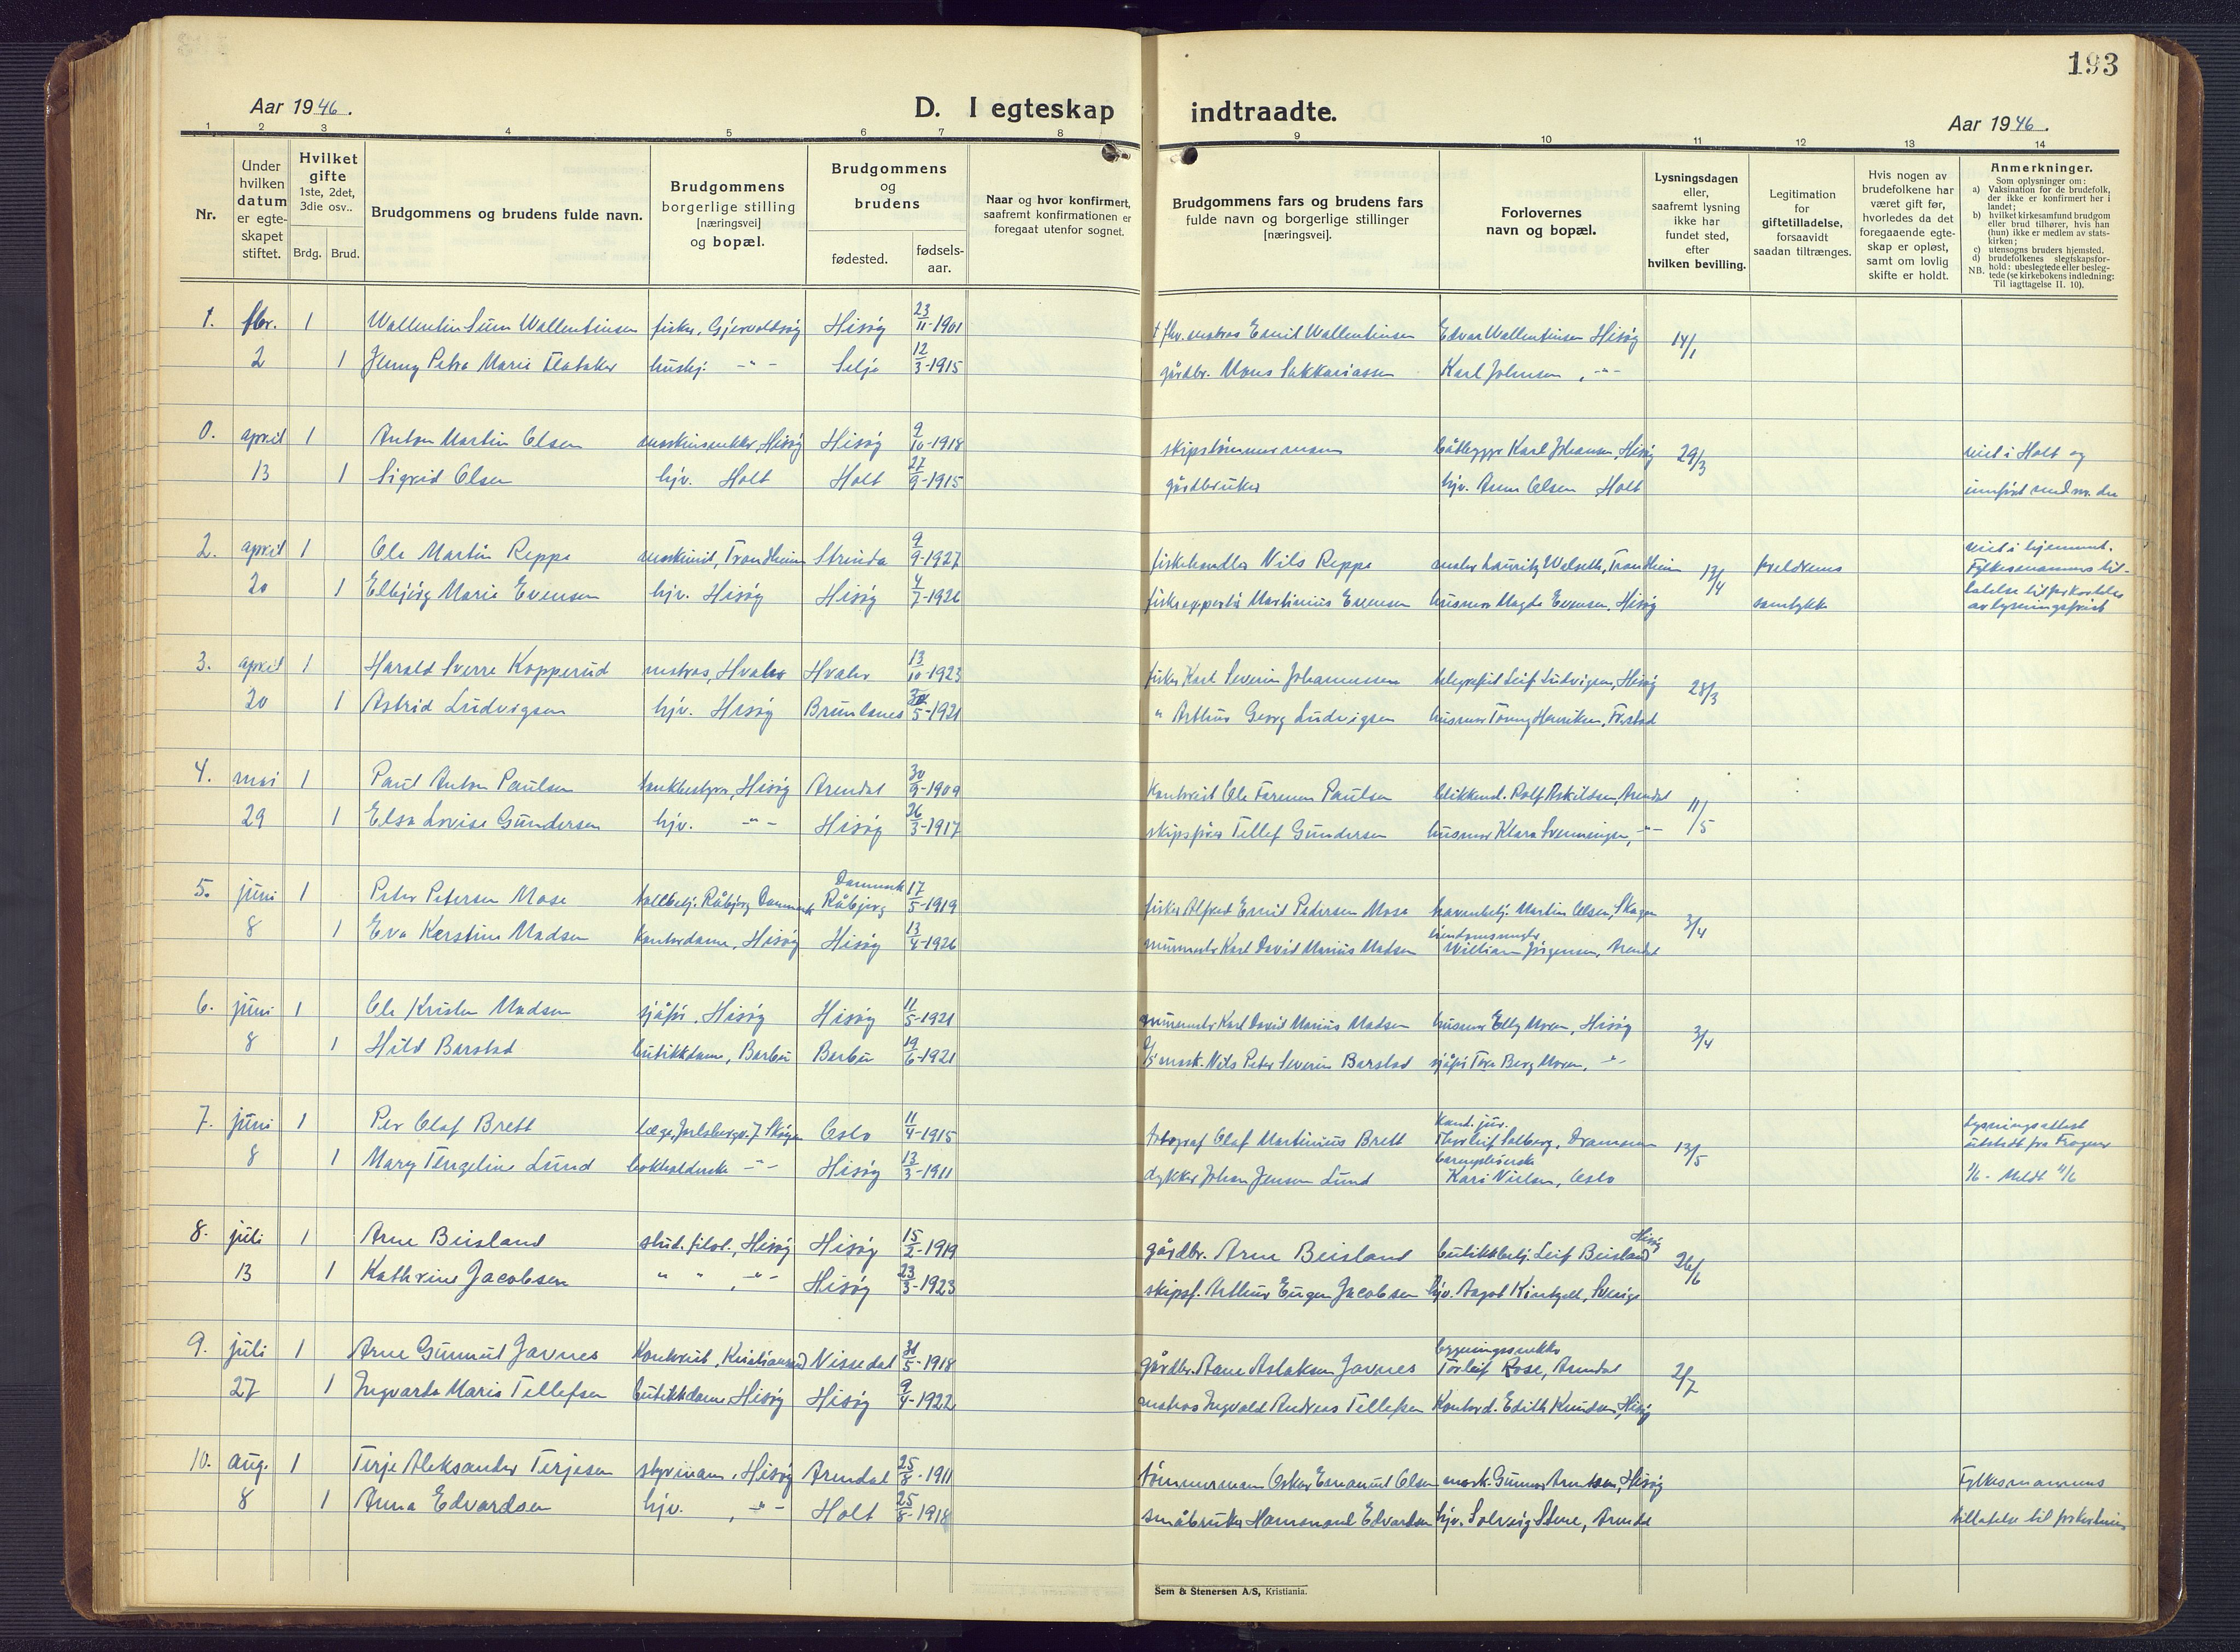 193
Aar 1946.
D. I egteskap indtraadte.
Aar 1946.
1 2 3 4 5 6 7 8 9 10 11 12 13 14
Nr.
Under hvilken datum er egteskapet stiftet.
Hvilket gifte
1ste, 2det, 3die osv..
Brdg. Brud.
Brudgommens og brudens fulde navn.
Brudgommens borgerlige stilling [næringsvei] og bopæl.
Brudgommens og brudens
fødested.
fødsels-aar.
Naar og hvor konfirmert, saafremt konfirmationen er foregaat utenfor sognet.
Brudgommens fars og brudens fars fulde navn og borgerlige stillinger [næringsvei].
Forlovernes navn og bopæl.
Lysningsdagen eller, saafremt lysning ikke har fundet sted, efter hvilken bevilling.
Legitimation for giftetilladelse, forsaavidt saadan tiltrænges.
Hvis nogen av brudefolkene har været gift før, hvorledes da det foregaaende egteskap er opløst, samt om lovlig skifte er holdt.
Anmerkninger.
Som oplysninger om:
a) Vaksination for de brudefolk, der ikke er konfirmert her i landet;
b) hvilket kirkesamfund brudgom eller brud tilhører, hvis han (hun) ikke er medlem av statskirken;
c) utensogns bruders hjemsted.
d) brudefolkenes slegtskapsforhold: ubeslegtede eller beslegtede (se kirkebokens indledning;
NB. Til iagttagelse II. 10).
1. fbr. 1 Wallentin Wallentinsen fisker, Gjervoldsøy Hisøy 23/11-1901 Emil Wallentinsen Edvar Wallentinsen Hisøy 14/1
2 1 Jenny Petra Marie Flataker hushj. -"- Selje 12/3-1915 gårdbr. Mons Sakkariassen Karl Johnsen, -"-
0. april 1 Anton Martin Olsen Hisøy Hisøy 9/10-1918 skipstømmermann båtbygger Karl Johansen, Hisøy 29/3 viet i Holt og
13 1 Sigrid Olsen hjv. Holt Holt 27/9-1915 gårdbruker hjv. Olsen Holt innført med nr. der
2. april 1 Ole Martin Reppe maskinist, Trondheim Strinda 9/9-1927 fiskehandler Nils Reppe maler Lauritz Welseth, Trondheim 13/4 foreldrenes viet i hjemmet.
Fylkesmannens til-
20 1 Elbjørg Marie Evensen hjv. Hisøy Hisøy 4/7-1926 fiskeeksportør Martinius Evensen husmor Magda Evensen, Hisøy samtykke latelse til forkortelse
av lysningsfrist
3. april 1 Harald Sverre Kopperud matros, Hvaler Hvaler 13/10-1923 fisker Karl Severin Johannessen telegrafist Leif Ludvigsen, Hisøy 28/3
20 1 Astrid Ludvigsen hjv. Hisøy Brunlanes 5-1921 " Arthur Georg Ludvigsen husmor Henriksen,
4. mai 1 Paul Anton Paulsen bankbestyrer, Hisøy Arendal 30/9-1909 Kontorist Ole Paulsen blikkensl. Rolf Askildsen, Arendal 11/5
29 1 Elsa Lovise Gundersen hjv. -"- Hisøy 26/3-1917 skipsfører Tellef Gundersen husmor Klara Svenningsen, -"-
5. juni 1 Peter Petersen Mose tollbetj. Råbjerg Danmark Danmark Råbjerg 17/5-1919 fisker Alfred Emil Pedersen Mose havnebetj. Martin Olsen, Skagen 3/4
8 1 Eva Kerstine Madsen Kontordame, Hisøy Hisøy 13/4-1926 murmester Karl David Marius Madsen eiendomsmegler William Jörgensen, Arendal
6. juni 1 Ole Kristen Madsen sjåfør, Hisøy Hisøy 11/5-1921 murmester Karl David Marius Madsen husmor Elly Moren, Hisøy 3/4
8 1 Hild Barstad butikkdame, Barbu Barbu 19/6-1921 mask. Nils Peter Severin Barstad sjåfør Tore Berg Moren, -"-
7. juni 1 Per Olaf Brett læge, Jarlsborgv. 7 Skøyen Oslo 11/4-1915 fotograf Olaf Martinius Brett Kand. jur. Thorleif Solberg, Drammen 13/5 Lysningsattest
utstedt fra Frogner
8 1 Mary Tengeline Lund bokholderske -"- Hisøy 13/3-1911 dykker Johan Jensen Lund barnepleierske Kari Nielsen, Oslo 1/6 - Meldt 11/6
8. juli 1 Arne Beisland stud. filol., Hisøy Hisøy 15/2-1919 gårdbr. Arne Beisland butikkbetj. Leif Beisland Hisøy 26/6
13 1 Kathrine Jacobsen " " , -"- Hisøy 23/3-1923 skipsf. Arthur Eugen Jacobsen hjv. Aagot, Sverige
9. juli 1 Arne Gunnuf Javnes Kontorist, Kristiansand Nissedal 31/5-1918 gårdbr. Aane Aslaksen Javnes bygningssnekker Torleif Rose, Arendal 2/7
27 1 Ingvarda Marie Tellefsen butikkdame, Hisøy Hisøy 9/4-1922 matros Ingvald Andreas Tellefsen Kontord. Edith Knudsen, Hisøy
10. aug. 1 Terje Aleksander Terjesen styrmann, Hisøy Arendal 25/8-1911 tömmermann Oskar Emanuel Olsen mask. Gunnar Arntsen, Hisøy Fylkesmannens
8 1 Anna Edvardsen hjv. , -"- Holt 25/8-1918 småbruker Edvardsen hjv. Solveig Stene, Arendal tillatelse til
Sem & Stenersen A/S, Kristiania.